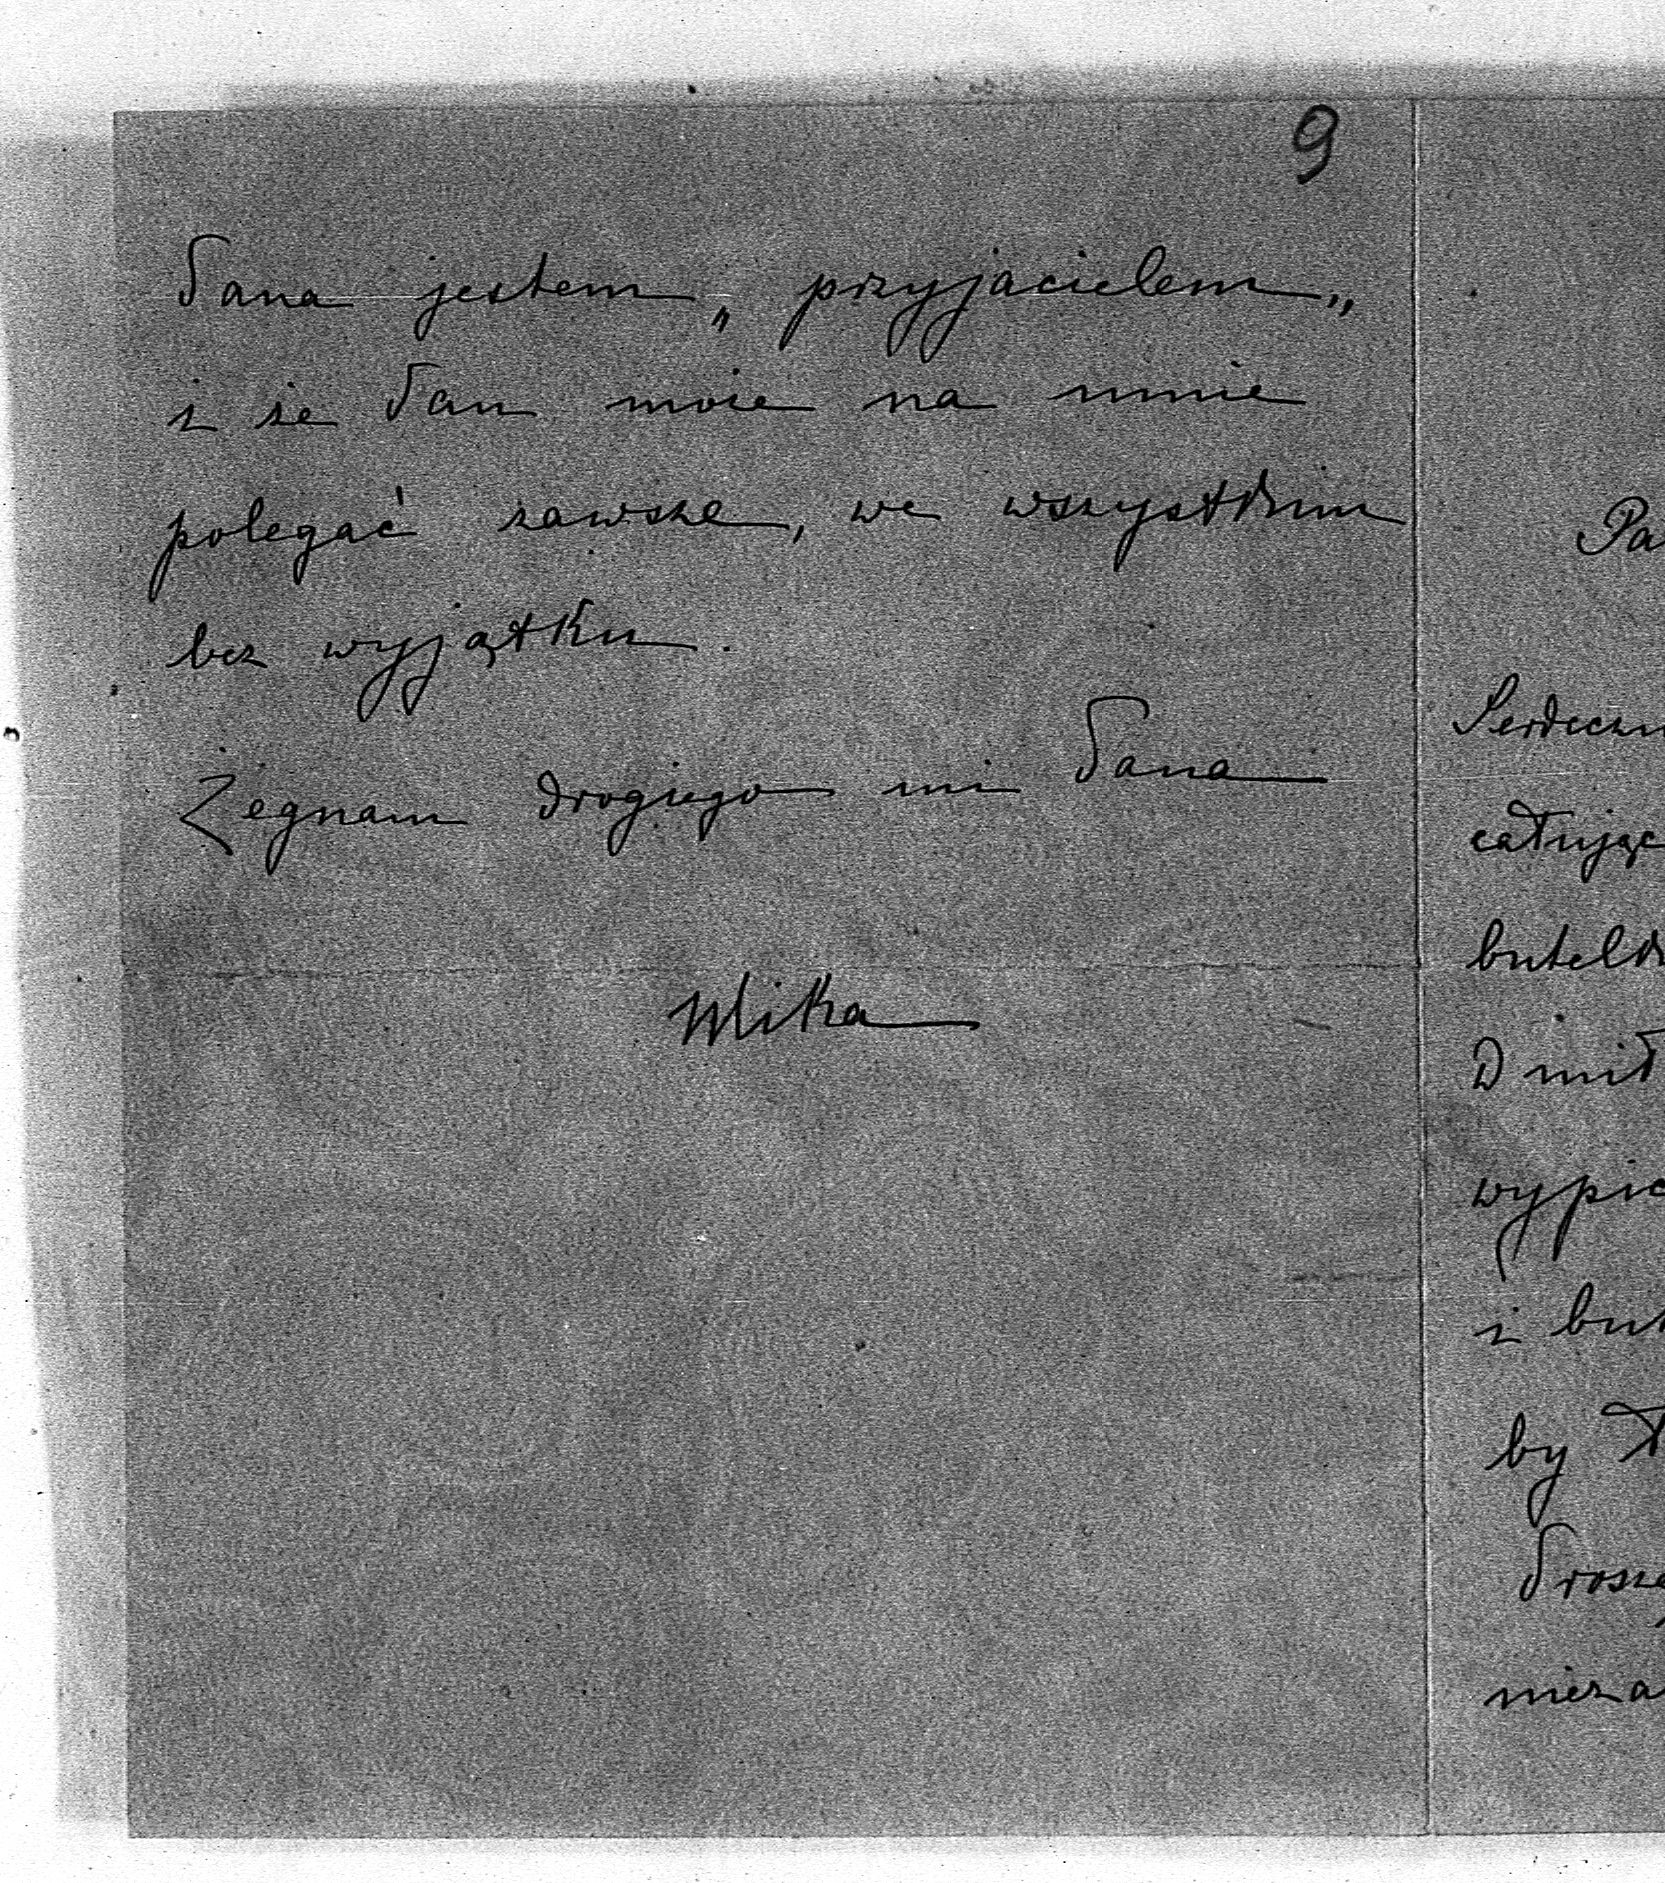 9
Pana jestem „przyjacielem„
i że Pan może na mnie
polegać zawsze, we wszystkim
bez wyjątku.
Żegnam drogiego mi Pana
Mika
Pa
Serdeczn
całując
butelk
D mił
wypic
i but
by
Prosz
nieza